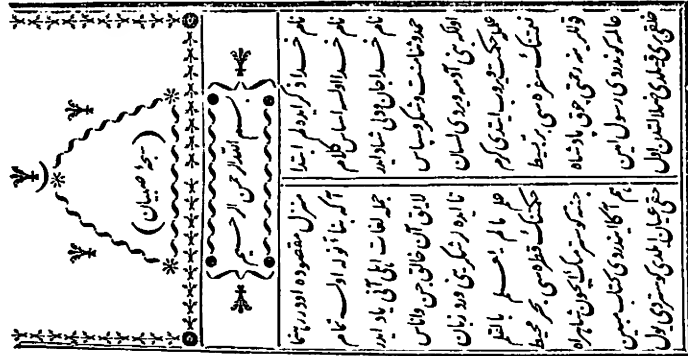 (سبحهٔ صبیان)
بسم الله الرحمن الرحیم
نام خدا ذکر ایده لم ابتدا منزل مقصوده اودر رهنما
نام خدا اوله اساس کلام آکه بنا آنوله اوله تمام
نام خدا جان و دلی شاد ایدر جمله لغات اهلی آنی یاد ایدر
حمد و ثنا منت و شکر و سپاس لایق آن خالق جن و اناس
اولکه بنی آدمه ویردی لسان تا ایده لر شکرینی ورد زبان
علم حکمت ویروب ایتدی کرم علم ما لم یعلم بالقلم
نعمتنک سفره سی بر بسیط حکمتنک قطره سی بحر محیط
قوللرینه رحمتی چوق پادشاه جنته کوسترمک ایچون شاهراه
عالمه کوندردی رسول امین هم آکا ایندردی کتاب مبین
خلقی بری قیلدی ضلالتدن اول حقی عیان ایلدی کوستردی یول